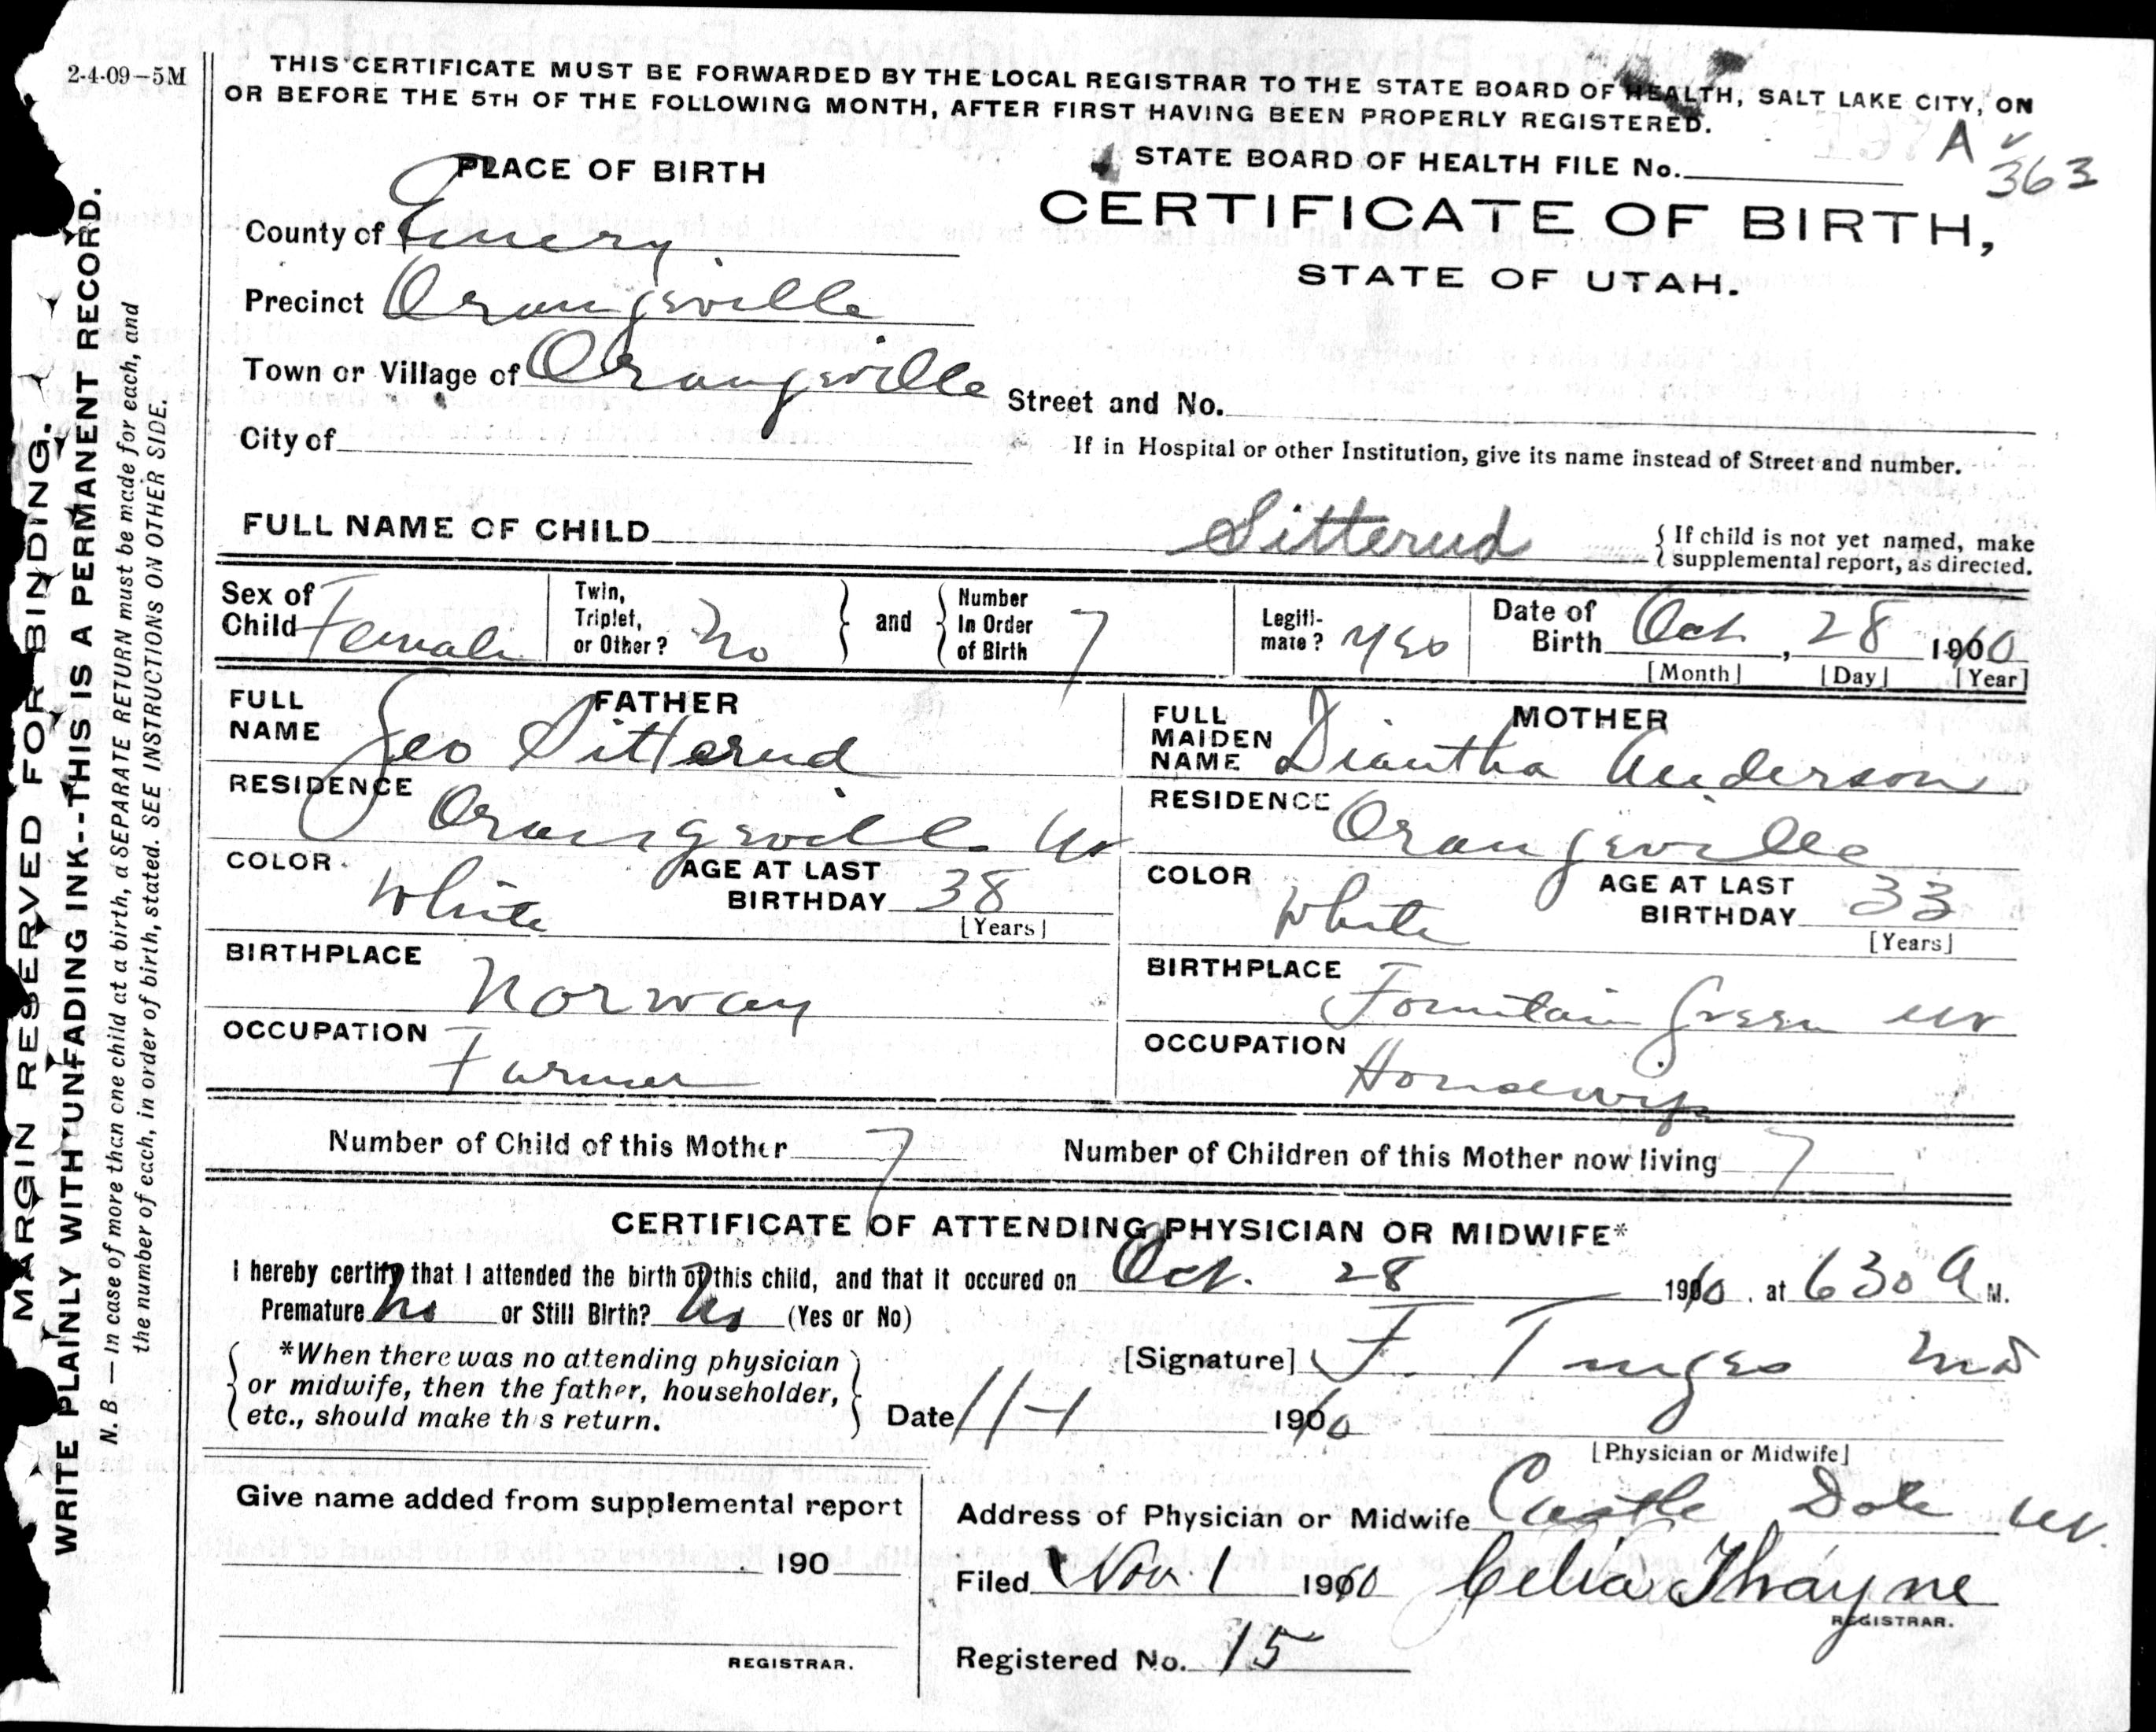 2-4-09-5M
THIS CERTIFICATE MUST BE FORWARDED BY THE LOCAL REGISTRAR TO THE STATE BOARD OF HEALTH, SALT LAKE CITY, ON
OR BEFORE THE 5TH OF THE FOLLOWING MONTH, AFTER FIRST HAVING BEEN PROPERLY REGISTERED.
MARGIN RESERVED FOR BINDING.
WRITE PLAINLY WITH UNFADING INK--THIS IS A PERMANENT RECORD.
N. B.—In case of more than one child at a birth, a SEPARATE RETURN must be made for each, and
the number of each, in order of birth, stated. SEE INSTRUCTIONS ON OTHER SIDE.
PLACE OF BIRTH
STATE BOARD OF HEALTH FILE No. A 363
CERTIFICATE OF BIRTH,
STATE OF UTAH.
County of Emery
Precinct Orangeville
Town or Village of Orangeville
Street and No.
City of
If in Hospital or other Institution, give its name instead of Street and number.
FULL NAME OF CHILD Sitterud
If child is not yet named, make
supplemental report, as directed.
Sex of
Child Female
Twin,
Triplet,
or Other? No
and
Number
In Order
of Birth 7
Legiti-
mate? Yes
Date of
Birth Oct. , 28 1910
[Month] [Day] [Year]
FATHER
FULL
NAME Geo Sitterud
RESIDENCE
Orangeville Ut
COLOR White
AGE AT LAST
BIRTHDAY 38
[Years]
BIRTHPLACE
Norway
OCCUPATION
Farmer
MOTHER
FULL
MAIDEN
NAME Diantha Anderson
RESIDENCE
Orangeville
COLOR White
AGE AT LAST
BIRTHDAY 33
[Years]
BIRTHPLACE
Fountain Green Ut
OCCUPATION
Housewife
Number of Child of this Mother 7 Number of Children of this Mother now living 7
CERTIFICATE OF ATTENDING PHYSICIAN OR MIDWIFE*
I hereby certify that I attended the birth of this child, and that it occured on Oct. 28 1910, at 630 A M.
Premature No or Still Birth? No (Yes or No)
*When there was no attending physician
or midwife, then the father, householder,
etc., should make this return.
[Signature] F. Turges MD
Date 11-1 1910
[Physician or Midwife]
Give name added from supplemental report
190
REGISTRAR.
Address of Physician or Midwife Castle Dale Ut.
Filed Nov. 1 1910 Celia Thayne
REGISTRAR.
Registered No. 15